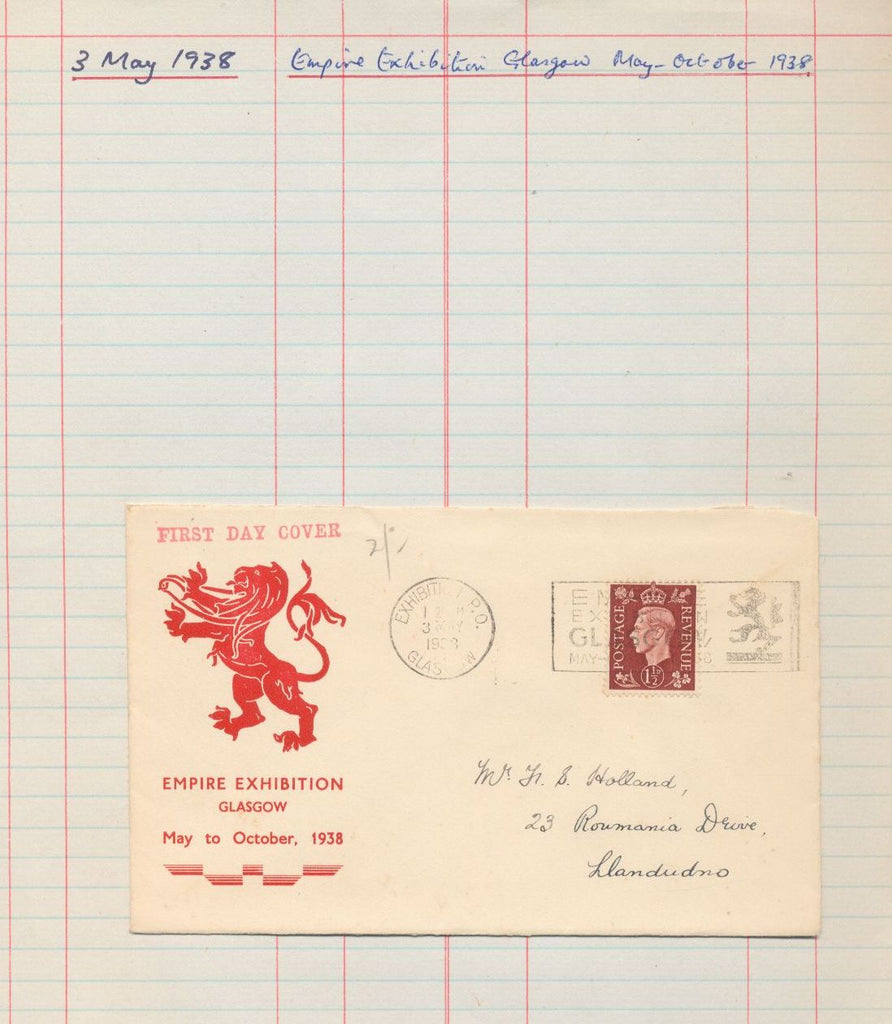 3 May 1938 Empire Exhibition Glasgow May-October 1938
FIRST DAY COVER
2/-
EXHIBITION P.O.
3 MAY
1938
GLASGOW
POSTAGE REVENUE
1½D
MAY-
EMPIRE EXHIBITION
GLASGOW
May to October, 1938
Mr. H. S. Holland,
23 Roumania Drive,
Llandudno